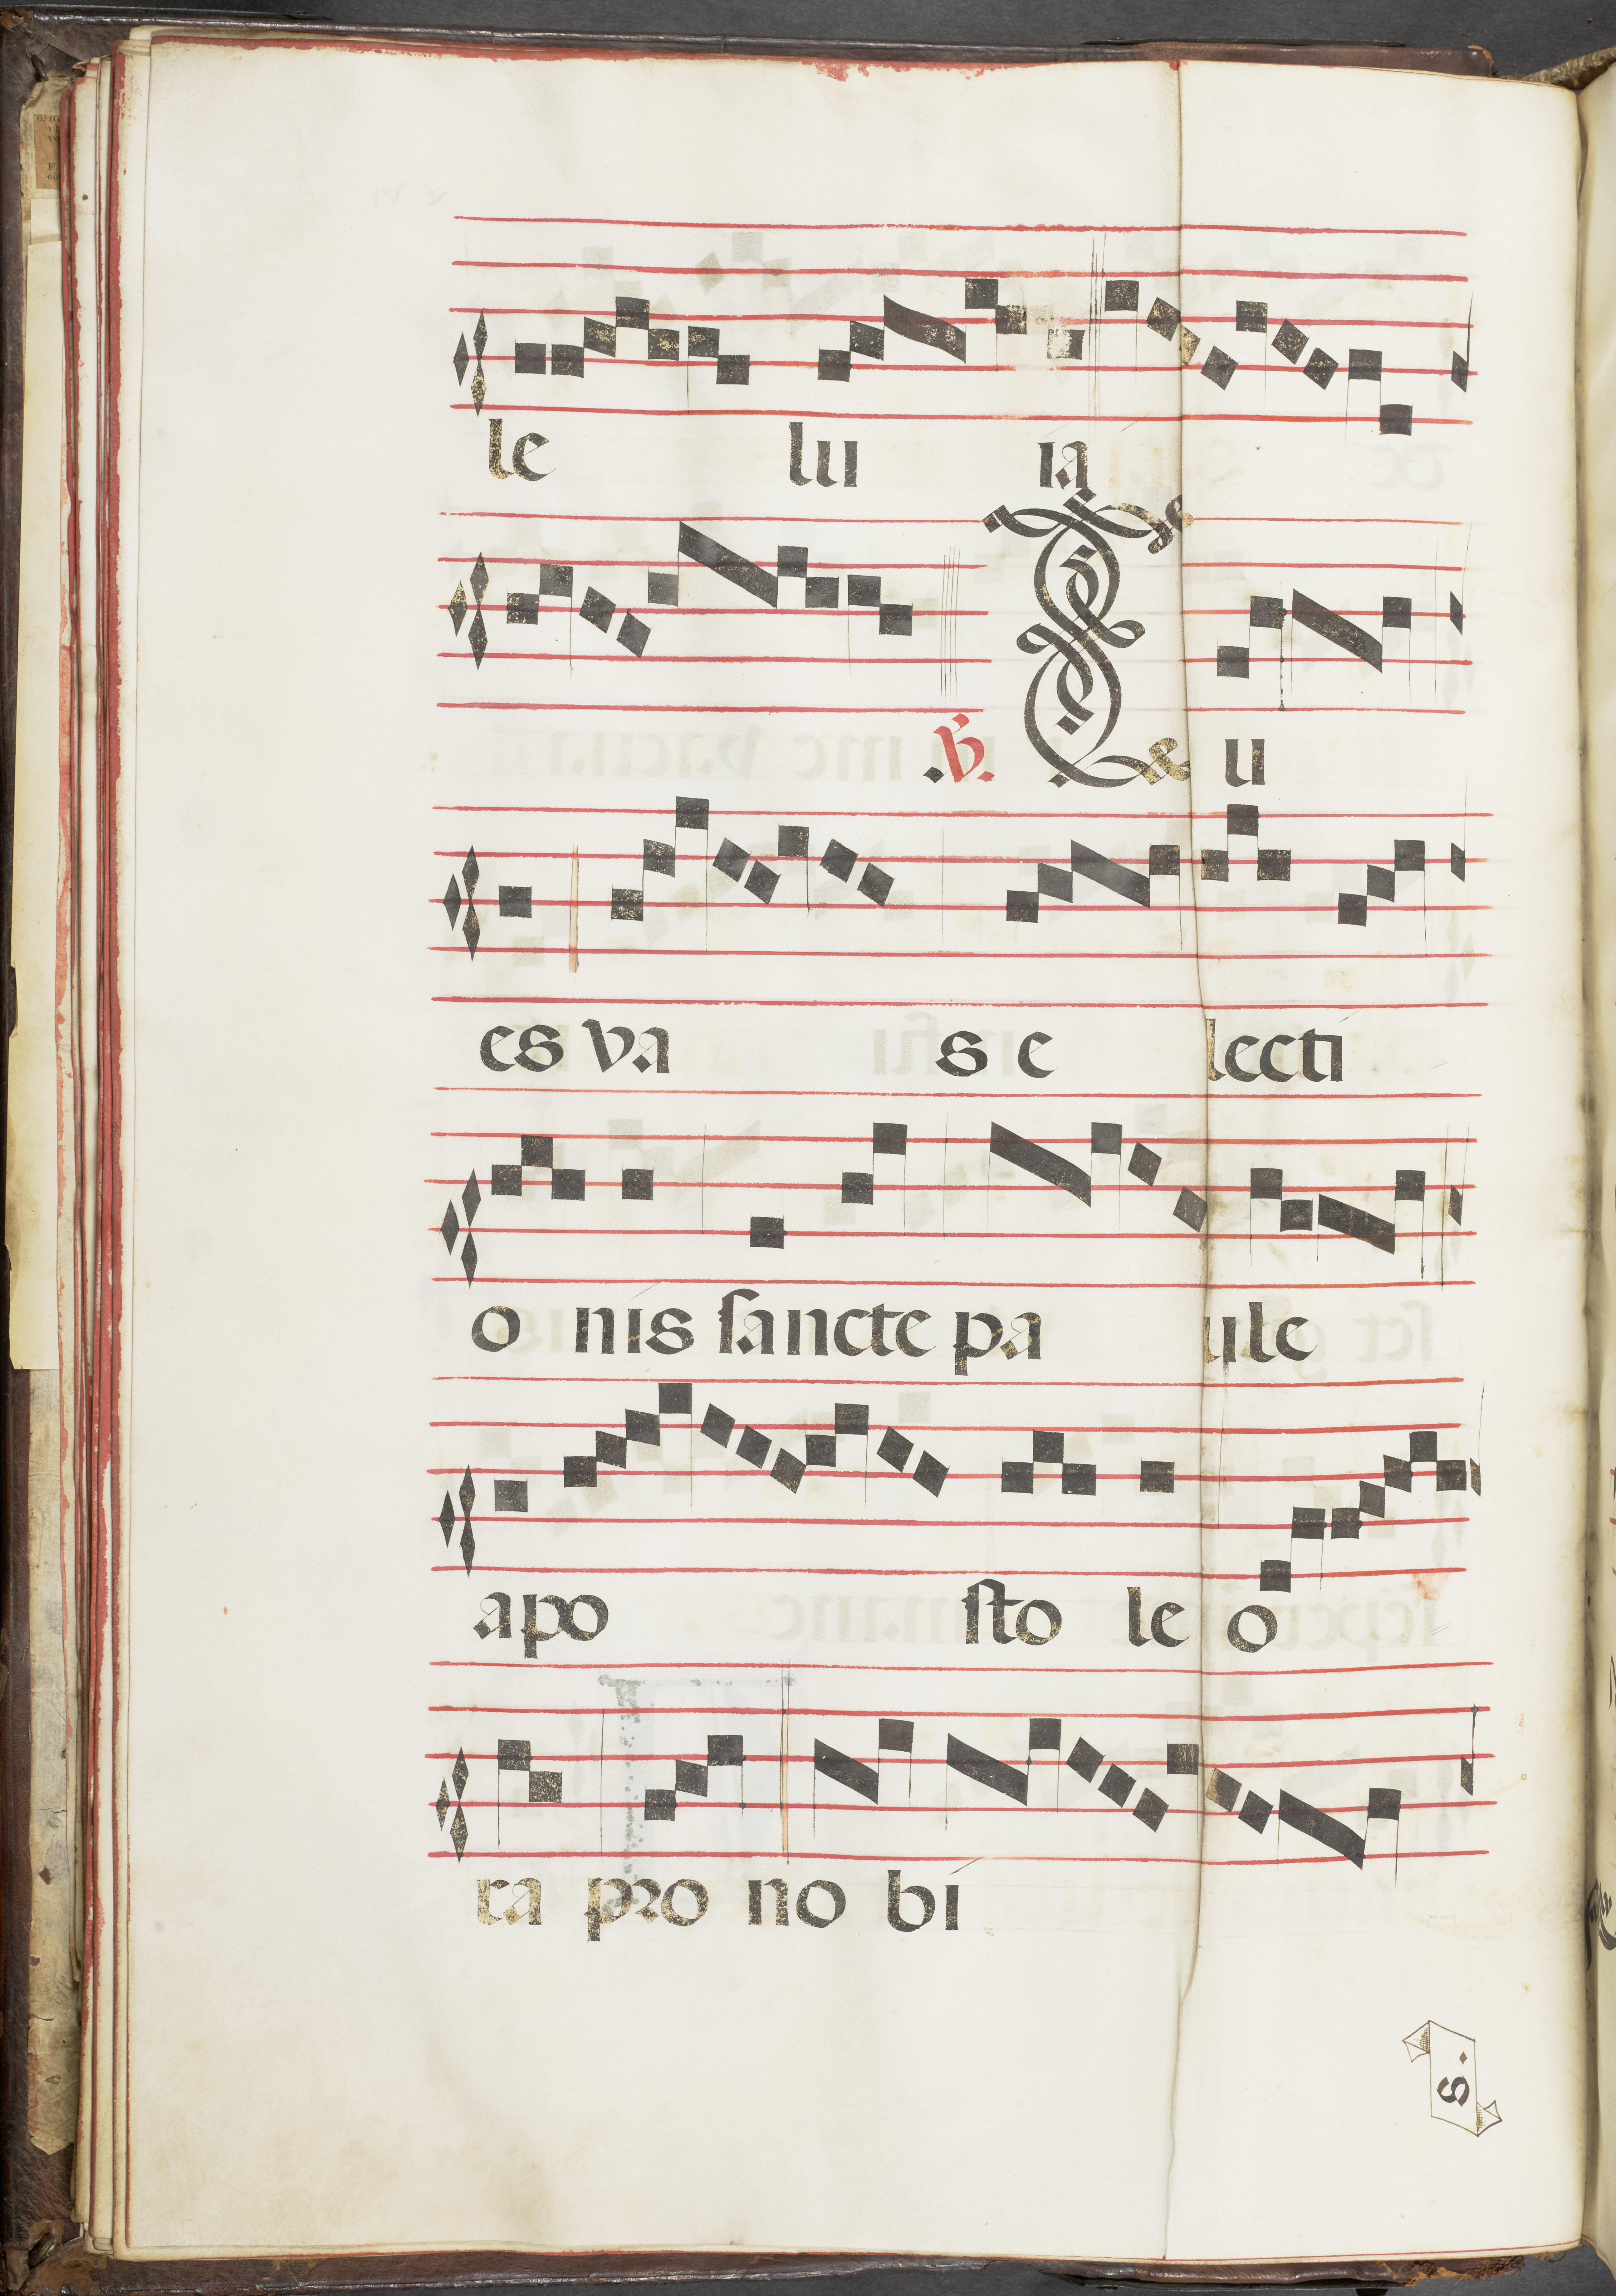 le lu ia
.V. T u
es va s e lecti
o nis sancte pa ule
apo sto le o
ra pro no bi
s.